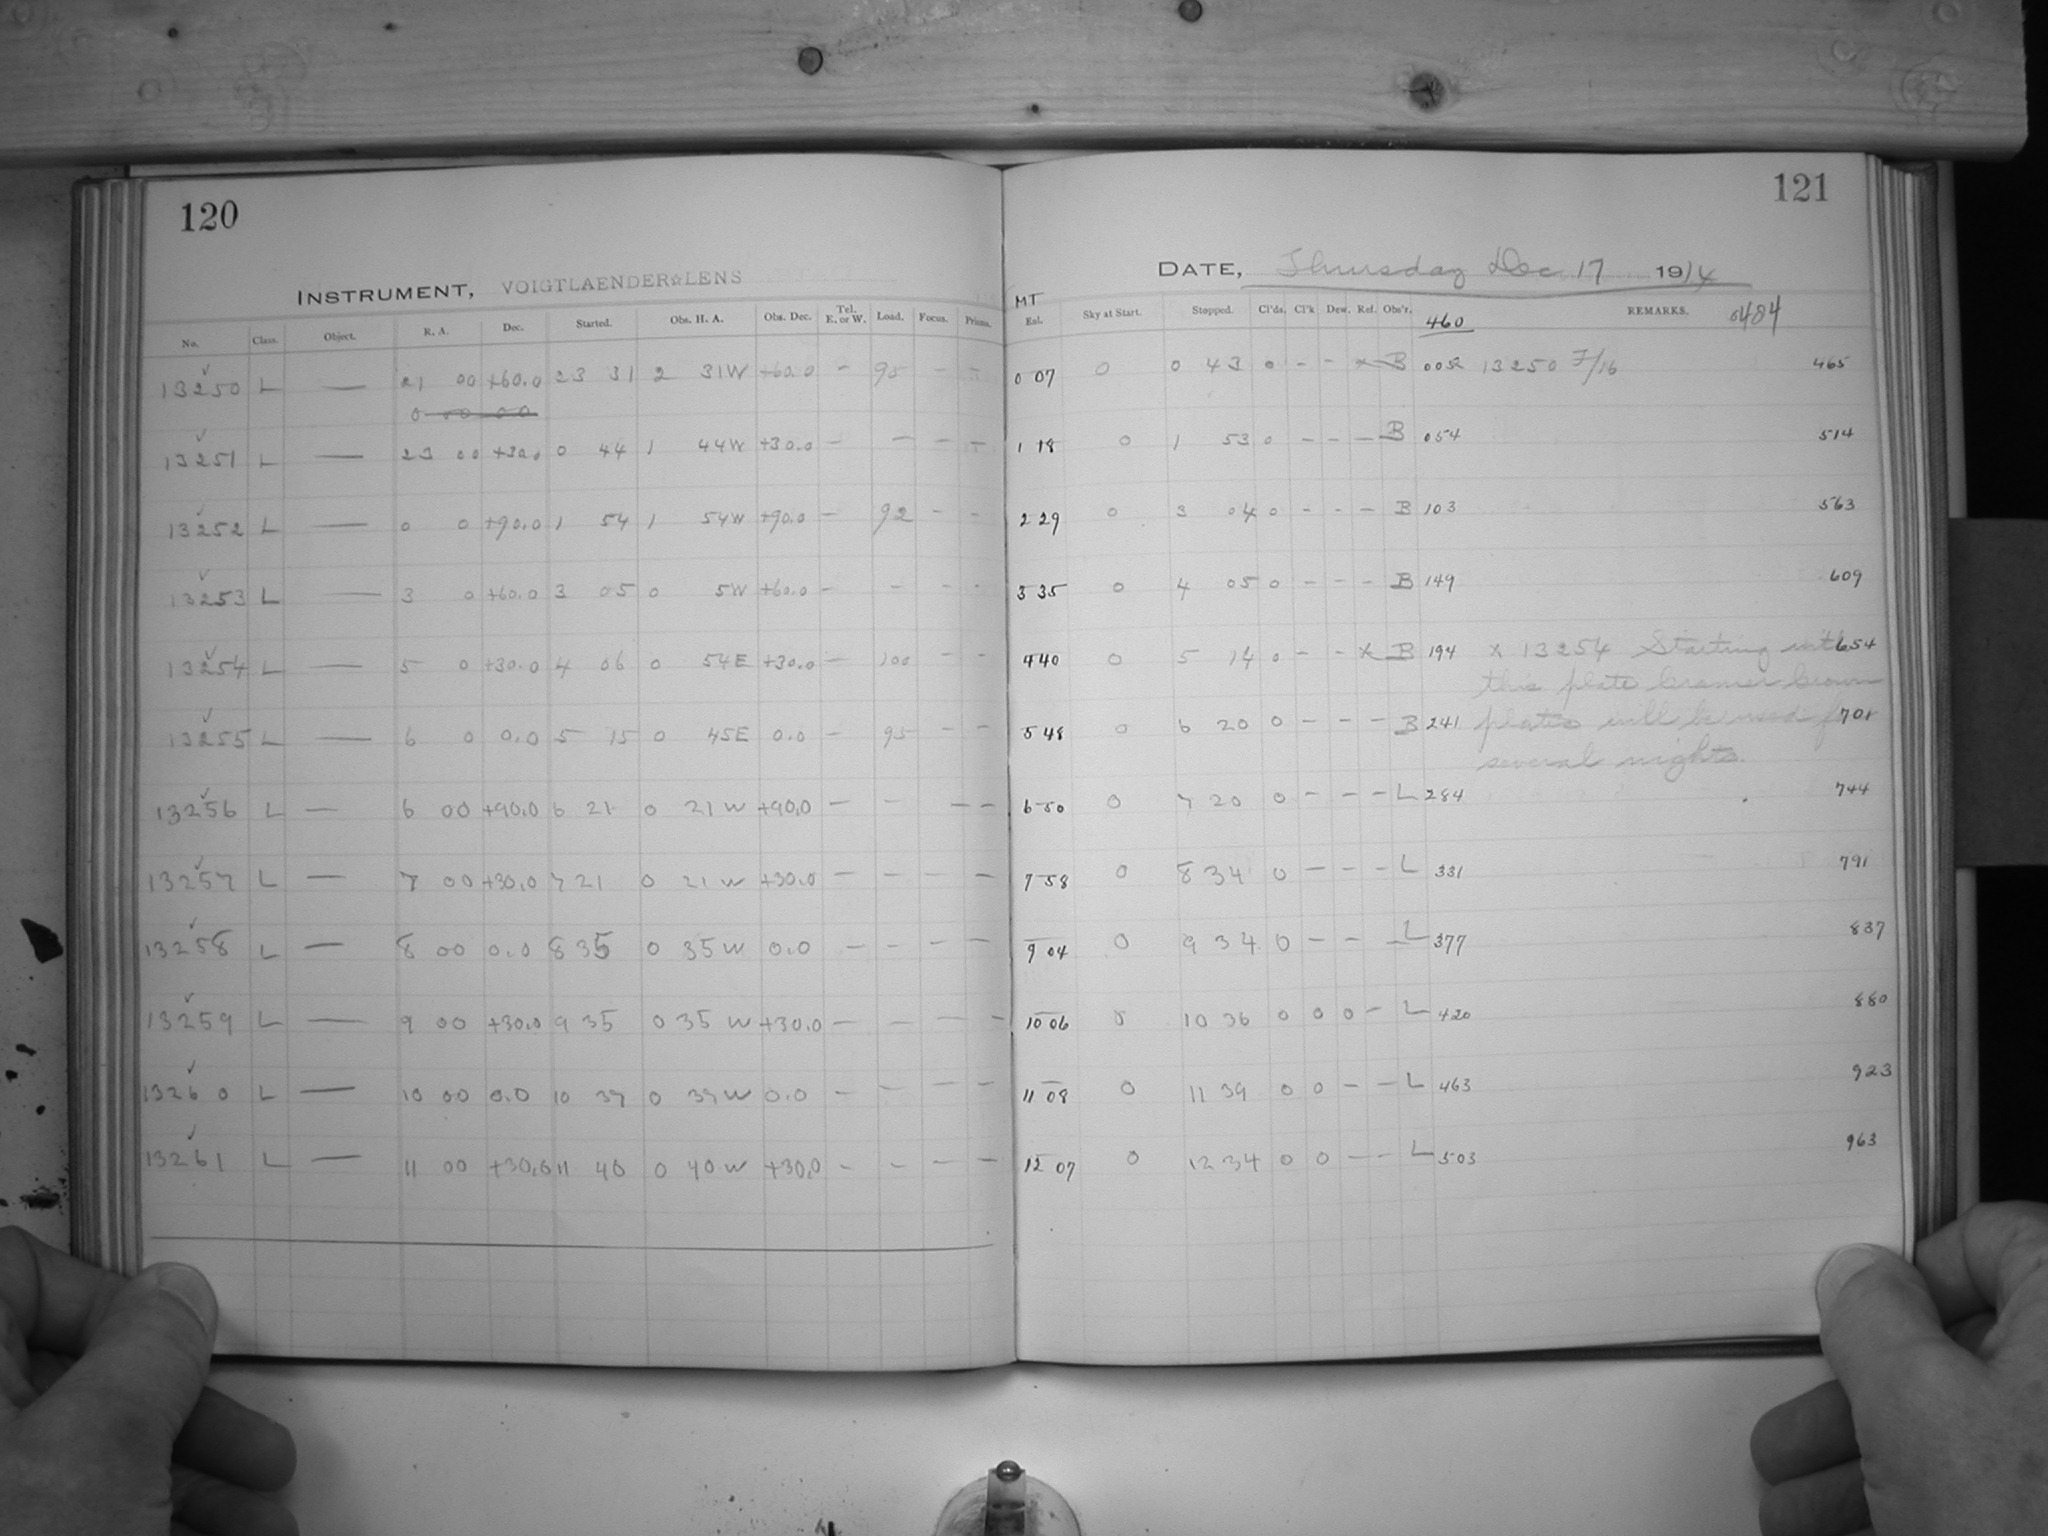 120
121
INSTRUMENT, VOIGTLAENDER☆LENS
DATE, Thursday Dec 17 1914
No. Class. Object. R. A. Dec. Started. Obs. H. A. Obs. Dec. Tel. E. or W. Load. Focus. Prisms. MT Eql. Sky at Start. Stopped. Cl'ds. Cl'k Dew. Ref. Obs'r. 460 REMARKS. 484
13250 L — 21 00 +60.0 23 31 2 31W +60.0 - 95 - - 0 07 0 0 43 0 - - x B 005 13250 F/16 465
0 00 00
13251 L — 23 00 +30.0 0 44 1 44W +30.0 - - - - 1 18 0 1 53 0 - - - B 054 514
13252 L — 0 0 +90.0 1 54 1 54W +90.0 - 92 - - 2 29 0 3 04 0 - - - B 103 563
13253 L — 3 0 +60.0 3 05 0 5W +60.0 - - - - 3 35 0 4 05 0 - - - B 149 609
13254 L — 5 0 +30.0 4 06 0 54E +30.0 - 100 - - 4 40 0 5 14 0 - - x B 194 x 13254 Starting with 654
this plate Cramer Crown
13255 L — 6 0 0.0 5 15 0 45E 0.0 - 95 - - 5 48 0 6 20 0 - - - B 241 plates will be used for 701
several nights.
13256 L — 6 00 +90.0 6 21 0 21 W +90.0 - - - - 6 50 0 7 20 0 - - - L 284 744
13257 L — 7 00 +30.0 7 21 0 21 W +30.0 - - - - 7 58 0 8 34 0 - - - L 331 791
13258 L — 8 00 0.0 8 35 0 35 W 0.0 - - - - 9 04 0 9 34 0 - - - L 377 837
13259 L — 9 00 +30.0 9 35 0 35 W +30.0 - - - - 10 06 0 10 36 0 0 0 - L 420 880
13260 L — 10 00 0.0 10 37 0 37 W 0.0 - - - - 11 08 0 11 39 0 0 - - L 463 923
13261 L — 11 00 +30.0 11 40 0 40 W +30.0 - - - - 12 07 0 12 34 0 0 - - L 503 963